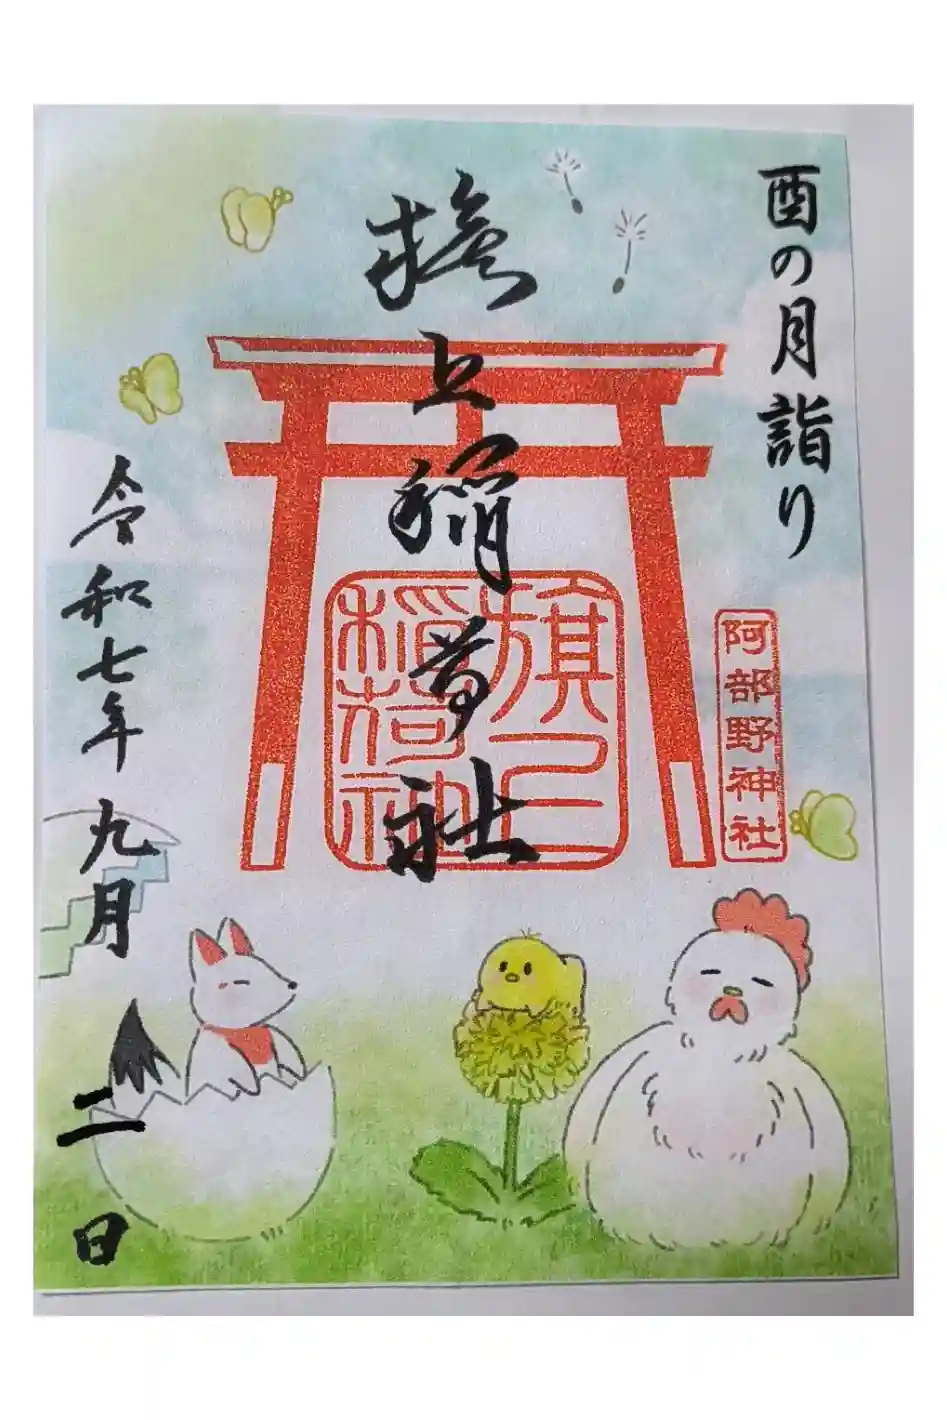 酉の月詣り
阿部野神社
旗上稲荷社
旗上
稲荷神
令和七年九月二日